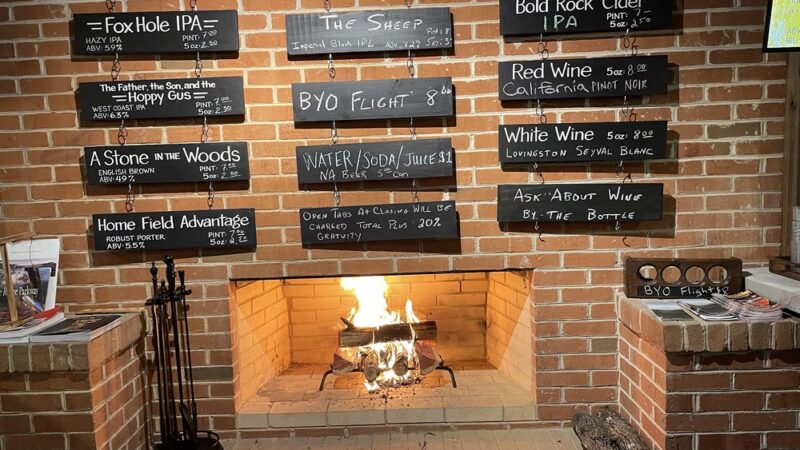 =Fox Hole IPA=
HAZY IPA
ABV: 5.9%
PINT: 7.00
5oz: 2.50
The Father, the Son, and the
=Hoppy Gus=
WEST COAST IPA
ABV: 6.3%
PINT: 7.00
5oz: 2.50
A Stone in the Woods
ENGLISH BROWN
ABV: 4.9%
PINT: 7.00
5oz: 2.50
Home Field Advantage
ROBUST PORTER
ABV: 5.5%
PINT: 7.00
5oz: 2.50
The Sheep
Imperial Black IPL
BYO Flight 8
Water/Soda/Juice $1
NA Beer 5.00 can
Open Tabs At Closing Will Be
Charged Total Plus 20%
Gratuity
Bold Rock Cider
IPA
PINT: 7.00
5oz: 2.50
Red Wine 5oz: 8.00
California PINOT NOIR
White Wine 5oz: 8.00
Lovingston Seyval Blanc
Ask About Wine
By The Bottle
BYO Flight $8